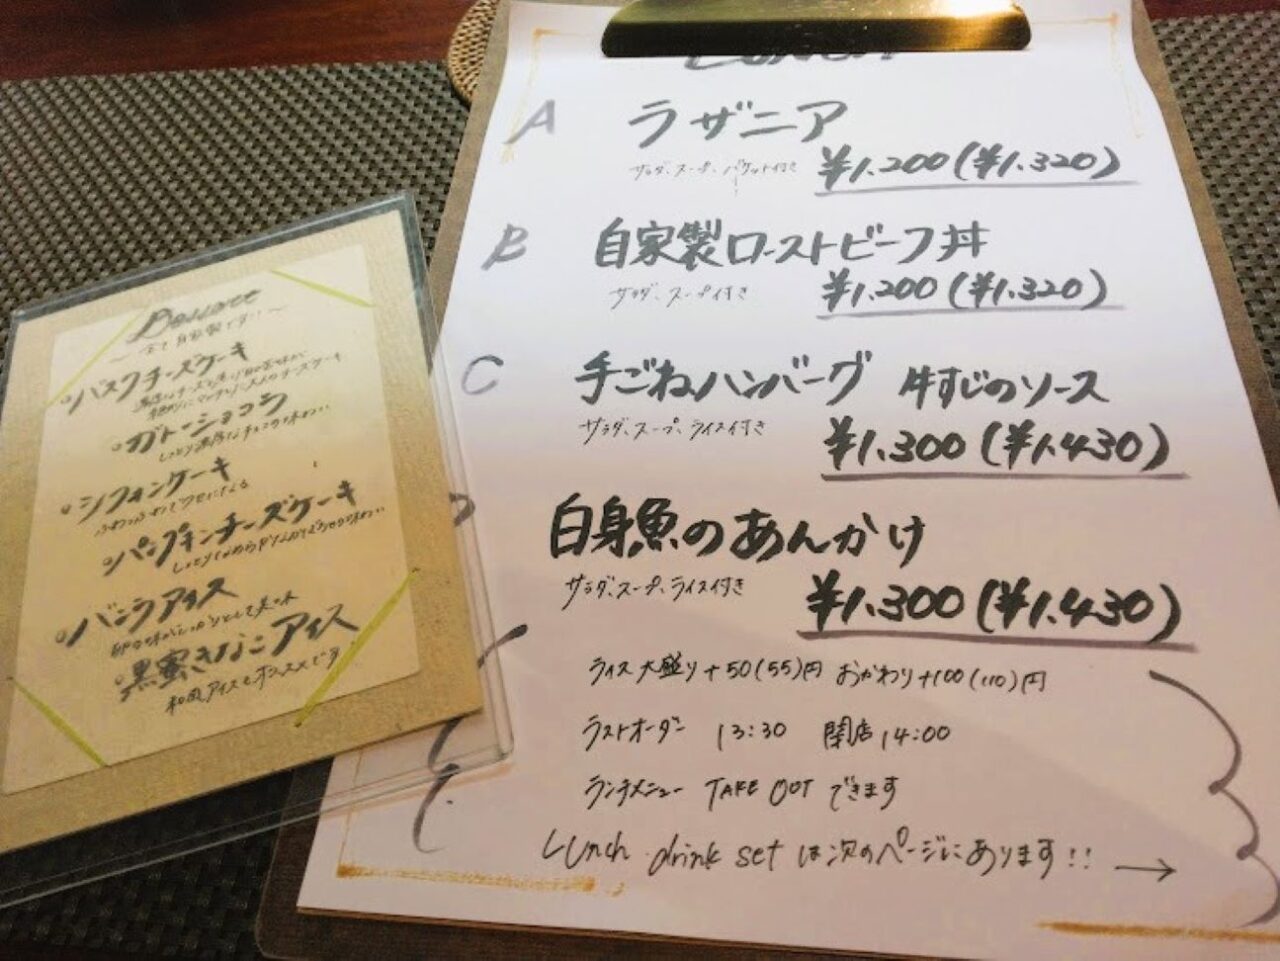 Lunch
A ラザニア
サラダ、スープ、バケット付き ¥1.200(¥1.320)
B 自家製ローストビーフ丼
サラダ、スープ付き ¥1.200(¥1.320)
C 手ごねハンバーグ 牛すじのソース
サラダ、スープ、ライス付き
¥1.300(¥1.430)
D 白身魚のあんかけ
サラダ、スープ、ライス付き
¥1.300(¥1.430)
ライス 大盛り+50(55)円 おかわり+100(110)円
ラストオーダー 13:30 閉店14:00
ランチメニュー TAKE OUT できます
Lunch drink set は次のページにあります!! →
〜全て自家製です!!〜
バスクチーズケーキ
ガトーショコラ
しっとり濃厚なチョコの味わい
シフォンケーキ
パンプキンチーズケーキ
バニラアイス
黒蜜きなこアイス
和風アイスもオススメです